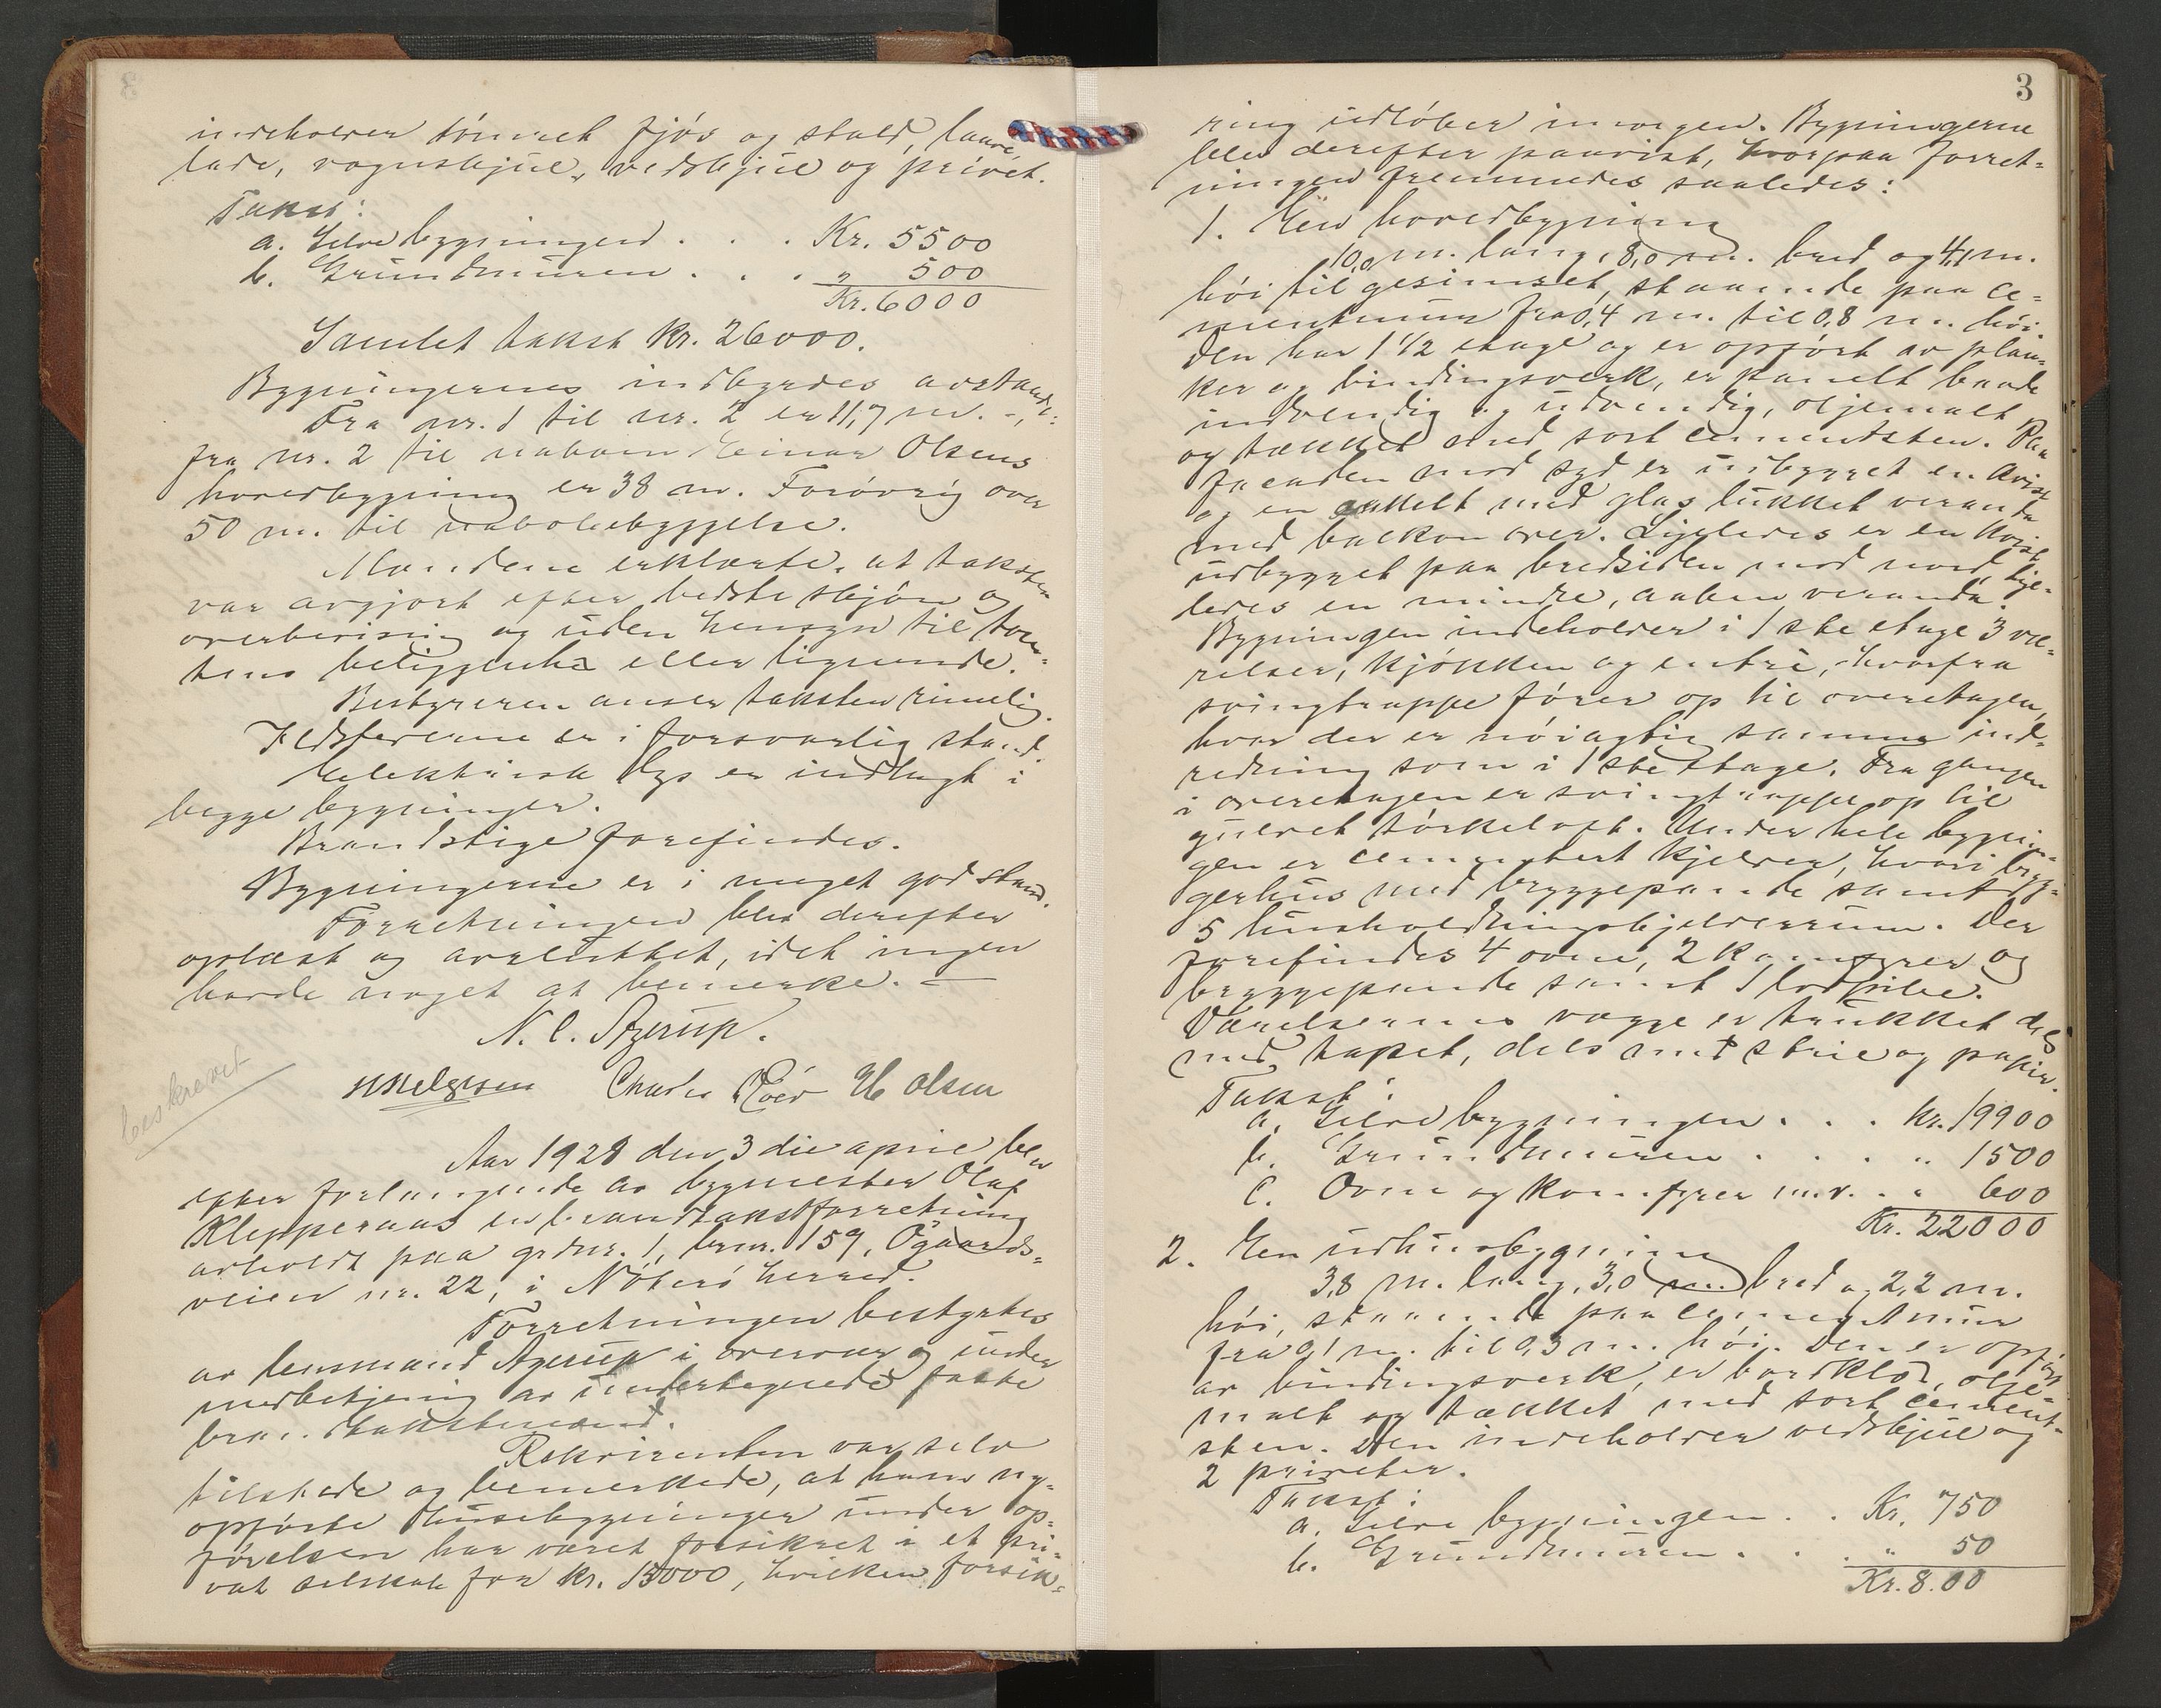 indeholder tømret fjøs og stald, laave,
lade, vognskjul, vedskjul og privet.
Takst:
a. Selve bygningen . . . Kr. 5500
b. Grundmuren . . . " 500
Kr. 6000
Samlet takst kr. 26000.
Bygningernes indbyrdes avstand:
Fra nr. 1 til nr. 2 er 11,7 m. -,
fra nr. 2 til naboen Einar Olsens
hovedbygning er 38 m. Forøvrig over
50 m. til nabobebyggelse.
Mændene erklærte, at taksten
var avgjort efter bedste skjøn og
overbevisning og uden hensyn til tom-
tens beliggenhet eller lignende.
Bestyreren anser taksten rimelig.
Ildstederne er i forsvarlig stand.
Elektrisk lys er indlagt i
begge bygninger.
Brandstige forefindes.
Bygningerne er i meget god stand.
Forretningen blev derefter
oplæst og avsluttet, idet ingen
havde noget at bemerke. —
N. C. Agerup.
H Helgesen Charles Røed H Olsen
beskrevet
Aar 1928 den 3die april blev
efter forlangende av bygmester Olaf
Klepperaas en brandtakstforretning
avholdt paa grdnr. 1, brnr. 159, Øgaards-
veien nr. 22, i Nøterø herred.
Forretningen bestyrtes
av lensmand Agerup i overvær og under
medbetjening av undertegnede faste
brandtakstmænd.
Rekvirenten var selv
tilstede og bemerkede, at hans ny-
opførte husebygninger under op-
førelsen har været forsikret i et pri-
vat selskab for kr. 15000, hvilken forsik-
3
ring utløber imorgen. Bygningerne
blev derefter paavist, hvorpaa forret-
ningen fremmedes saaledes:
1. Een hovedbygning
10,0 m. lang, 8,0 m. bred og 4,1 m.
høi til gesimset, staaende paa ce-
mentmur fra 0,4 m. til 0,8 m. høi.
Den har 1 1/2 etage og er opført av plan-
ker og bindingsverk, er panelt baade
indvendig og udvendig, oljemalt
og tækket med sort cementsten. Paa
facaden mod syd er utbygget en kvist
og en enkelt med glas lukket veranda
med balkon over. Ligeledes er en kvist
udbygget paa bredsiden mod nord, lige-
ledes en mindre, aaben veranda.
Bygningen indeholder i 1ste etage 3 væ-
relser, kjøkken og entré, hvorfra
svingtrappe fører op til overetagen,
hvor der er nøiagtig samme ind-
redning som i 1ste etage. Fra gangen
i overetagen er svingtrappe op til
gulvet tørkeloft. Under hele bygnin-
gen er cementert kjelder, hvori bryg-
gerhus med bryggepande samt
5 husholdningskjelderrum. Der
forefindes 4 ovne, 2 komfyrer og
bryggepande samt 1 lodpibe.
Værelsernes vægge er trukket dels
med tapet, dels med strie og papir.
Takst:
a. Selve bygningen . . . kr. 19900
b. Grundmuren . . . . " 1500
c. Ovne og komfyrer m.v. . " 600
Kr. 22000
2. Een udhusbygning
3,8 m. lang, 3,0 m. bred og 2,2 m.
høi, staaende paa cementmur
fra 0,1 m. til 0,3 m. høi. Den er opført
av bindingsverk, er bordklæd, olje-
malt og tækket med sort cement-
sten. Den indeholder vedskjul og
2 priveter.
Takst:
a. Selve bygningen . . Kr. 750
b. Grundmuren . . . " 50
Kr. 8.00